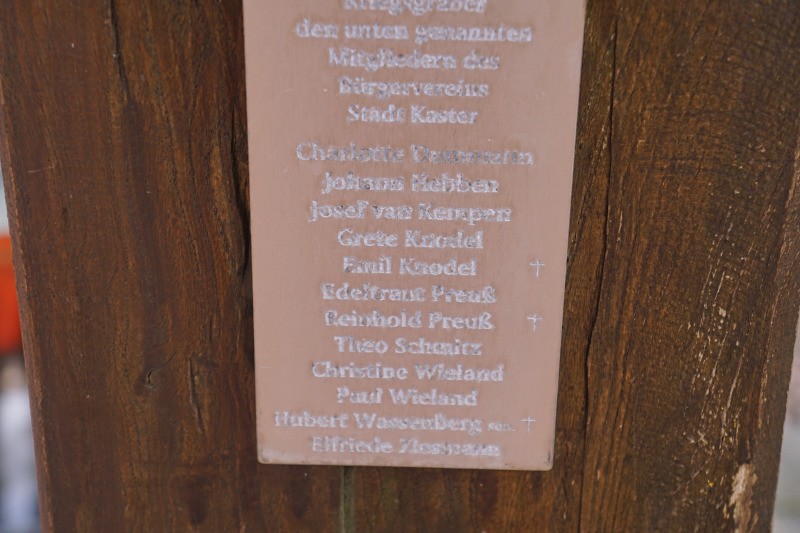 Kriegsgräber
den unten genannten
Mitgliedern des
Bürgervereins
Stadt Kaster
Charlotte
Johann Hebben
Josef van Kempen
Grete Knodel
Emil Knodel †
Edeltraut Preuß
Reinhold Preuß †
Theo Schmitz
Christine Wieland
Paul Wieland
Hubert Wassenberg sen. †
Elfriede